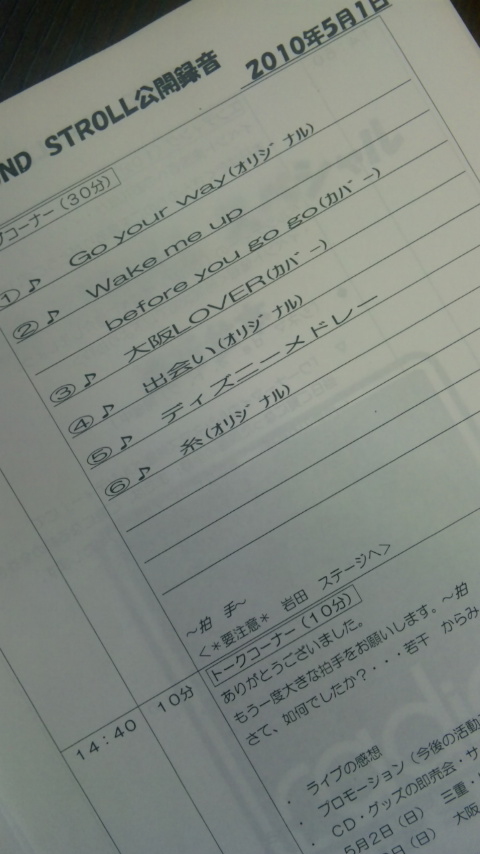 ND STROLL公開録音
2010年5月1日
コーナー(30分)
① ♪ Go your way(オリジナル)
② ♪ Wake me up
before you go go(カバー)
③ ♪ 大阪LOVER(カバー)
④ ♪ 出会い(オリジナル)
⑤ ♪ ディズニーメドレー
⑥ ♪ 糸(オリジナル)
~拍 手~
<*要注意* 岩田 ステージへ>
14:40 10分
トークコーナー(10分)
ありがとうございました。
もう一度大きな拍手をお願いします。~拍
さて、如何でしたか?・・・若干 からみ
・ ライブの感想
・ プロモーション(今後の活動
・ CD・グッズの即売会・サ
5月2日(日) 三重・
日(日) 大阪